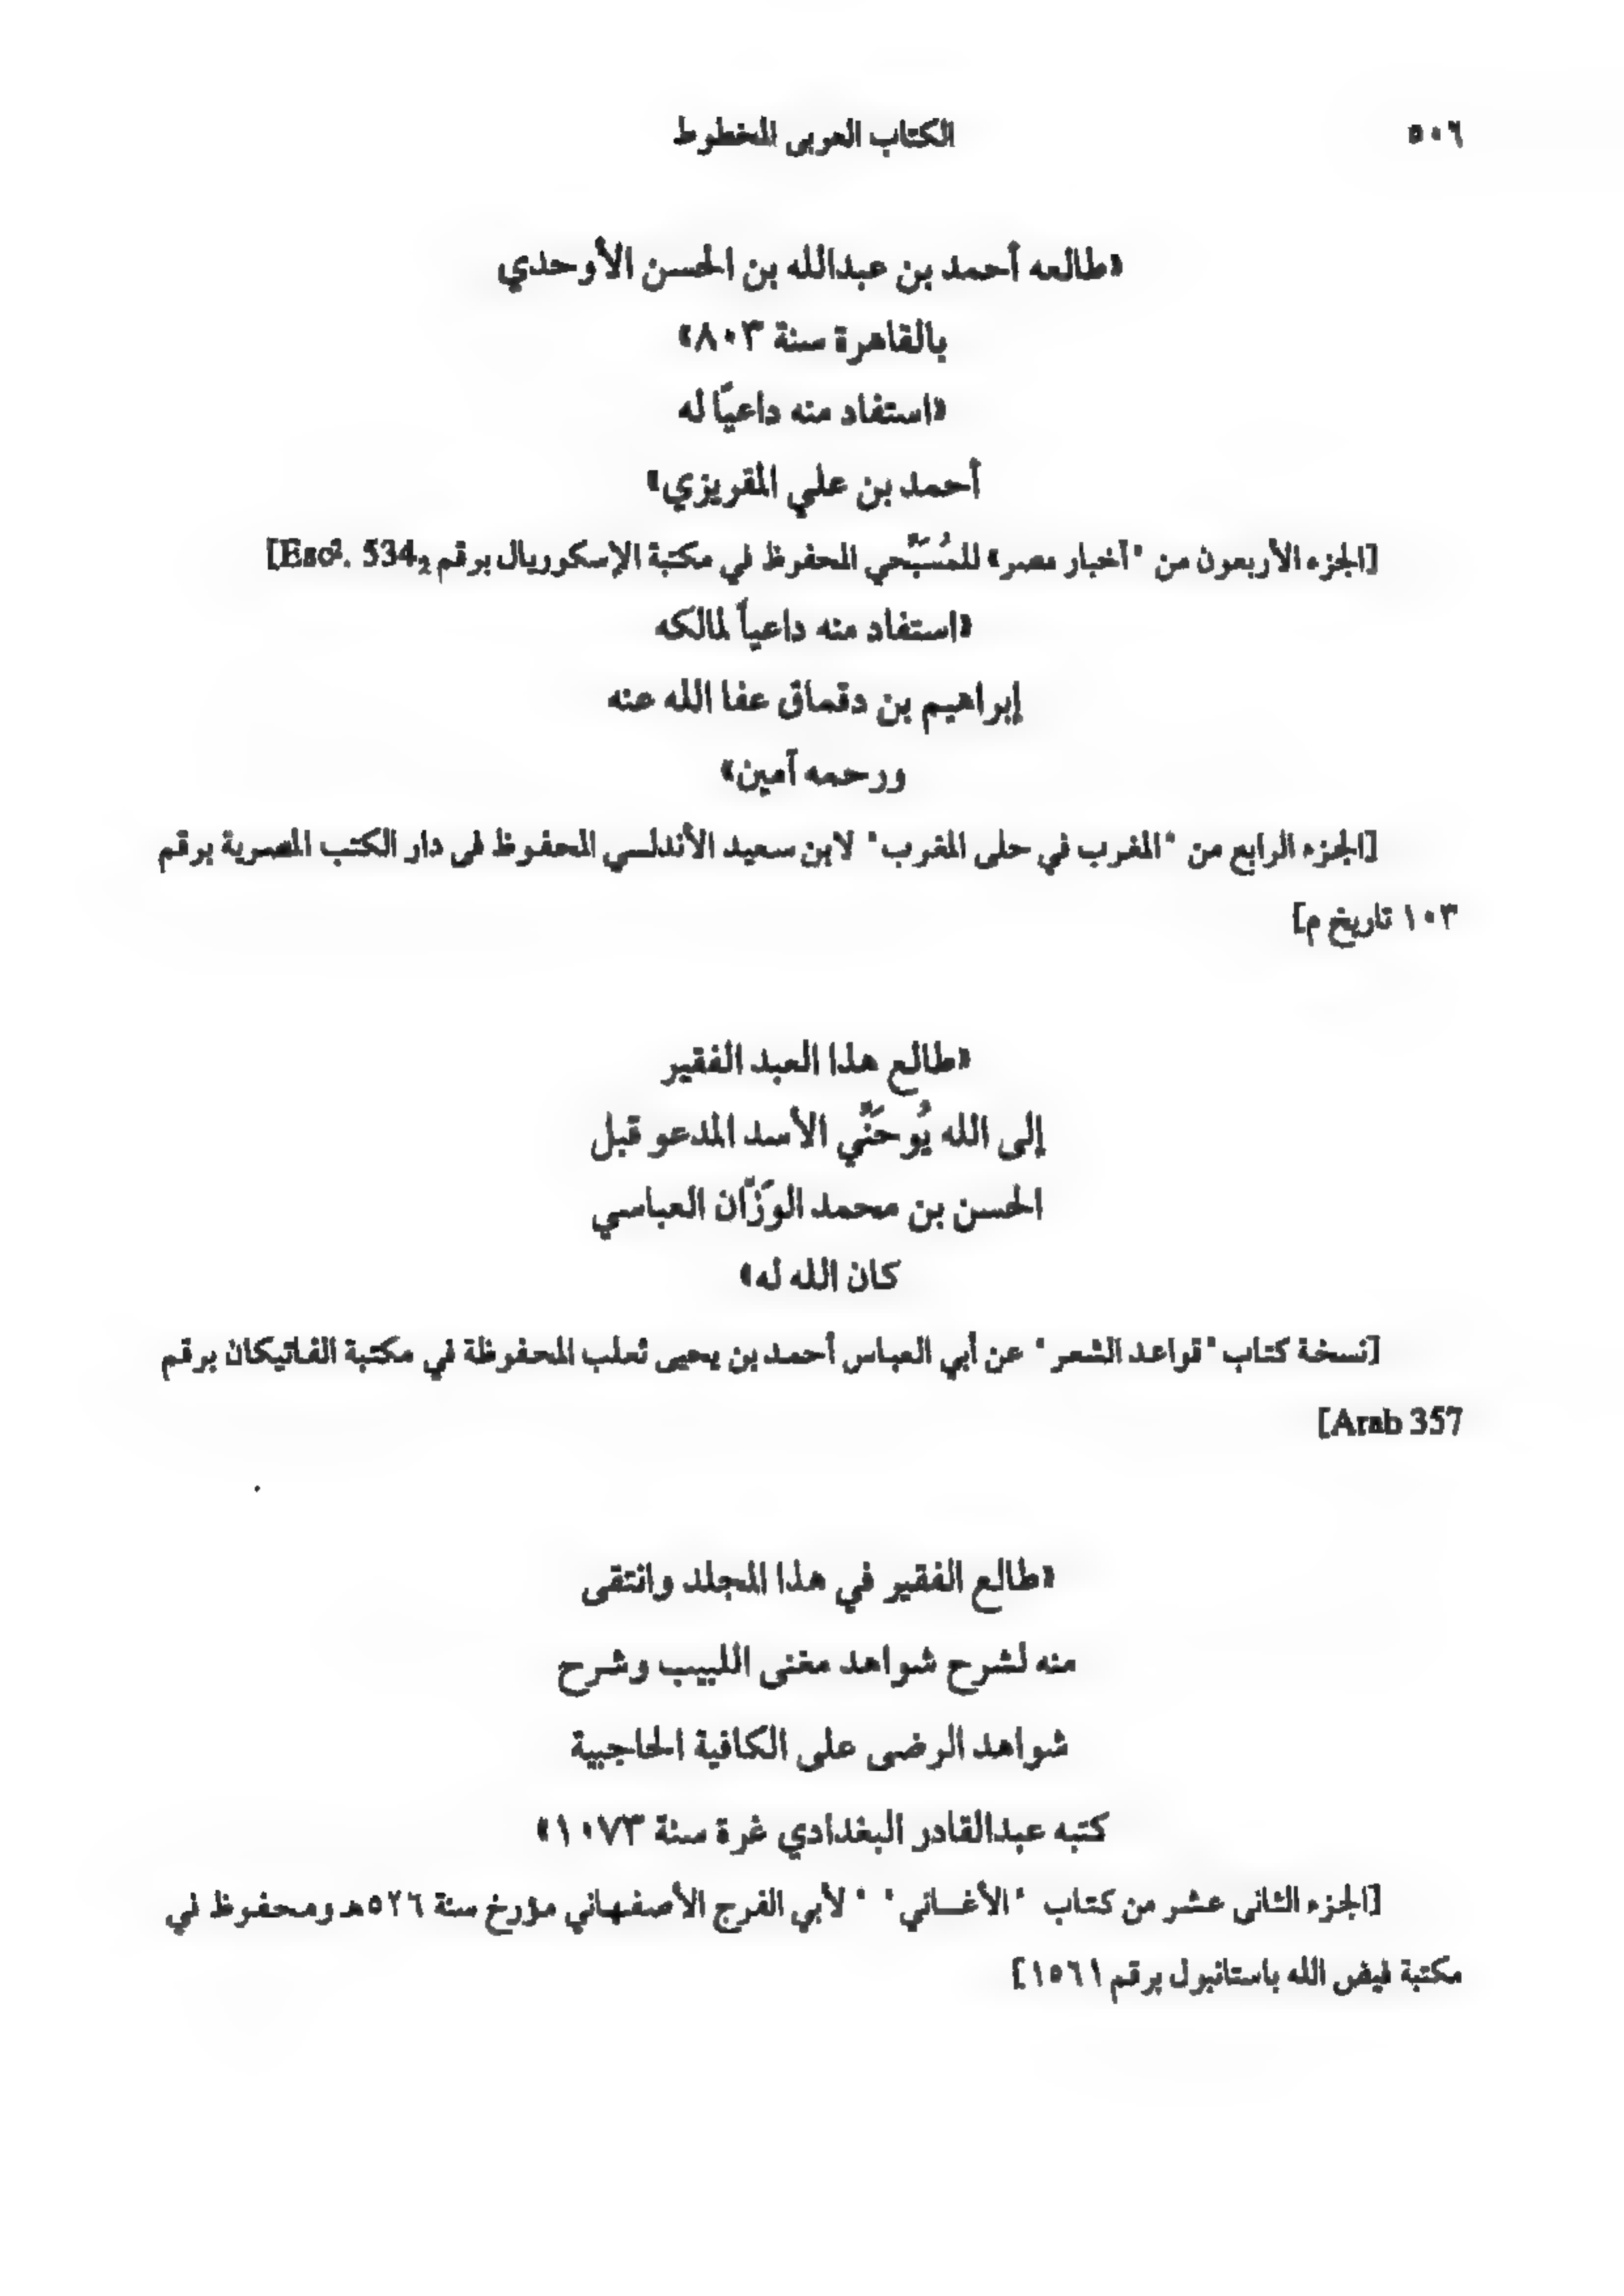 ٥٠٦ الكتاب العربى المخطوط
«طالعه أحمد بن عبدالله بن الحسن الأوحدي
بالقاهرة سنة ٨٠٣»
«استفاد منه داعيًا له
أحمد بن علي المقريزي»
[الجزء الأربعون من "أخبار مصر» للمُسَبِّحي المحفوظ في مكتبة الإسكوريال برقم Esc². 534₂]
«استفاد منه داعياً لمالكه
إبراهيم بن دقماق عفا الله عنه
ورحمه آمين»
[الجزء الرابع من "المغرب في حلى المغرب" لابن سعيد الأندلسي المحفوظ فى دار الكتب المصرية برقم
١٠٣ تاريخ م]
«طالع هذا العبد الفقير
إلى الله يُوحَنَّي الأسد المدعو قبل
الحسن بن محمد الوَزّان العباسي
كان الله له»
[نسخة كتاب "قواعد الشعر" عن أبي العباس أحمد بن يحيى ثعلب المحفوظة في مكتبة الفاتيكان برقم
Arab 357]
«طالع الفقير في هذا المجلد وانتقى
منه لشرح شواهد مغنى اللبيب وشرح
شواهد الرضى على الكافية الحاجبية
كتبه عبدالقادر البغدادي غرة سنة ١٠٧٣»
[الجزء الثانى عشر من كتاب "الأغـــاني" " لأبي الفرج الأصفهاني مؤرخ سنة ٥٢٦هـ ومحفوظ في
مكتبة فيض الله باستانبول برقم ١٥٦١]